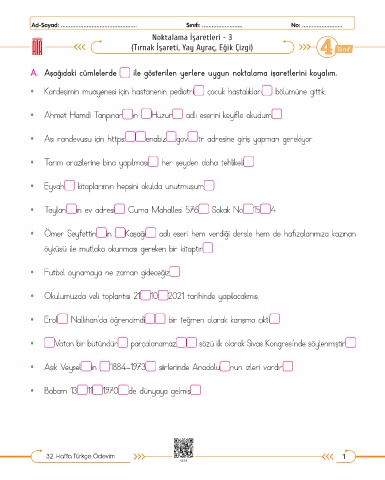 Ad-Soyad: ............................................... Sınıfı: .......................... No: ..........................
Noktalama İşaretleri - 3
(Tırnak İşareti, Yay Ayraç, Eğik Çizgi)
4. Sınıf
A. Aşağıdaki cümlelerde □ ile gösterilen yerlere uygun noktalama işaretlerini koyalım.
• Kardeşimin muayenesi için hastanenin pediatri□ çocuk hastalıkları□ bölümüne gittik.
• Ahmet Hamdi Tanpınar□ın □Huzur□ adlı eserini keyifle okudum□
• Aşı randevusu için https□□□enabız□gov□tr adresine giriş yapman gerekiyor.
• Tarım arazilerine bina yapılması□ her şeyden daha tehlikeli□
• Eyvah□ kitaplarımın hepsini okulda unutmuşum□
• Taylan□ın ev adresi□ Cuma Mahallesi 576□ Sokak No□15□4
• Ömer Seyfettin□in □Kaşağı□ adlı eseri hem verdiği dersle hem de hafızalarımıza kazınan
öyküsü ile mutlaka okunması gereken bir kitaptır□
• Futbol oynamaya ne zaman gideceğiz□
• Okulumuzda veli toplantısı 21□10□2021 tarihinde yapılacakmış.
• Erol□ Nallıhan'da öğrencimdi□□ bir teğmen olarak karşıma çıktı□
• □Vatan bir bütündür□ parçalanamaz□□ sözü ilk olarak Sivas Kongresi'nde söylenmiştir□
• Aşık Veysel□in □1884-1973□ şiirlerinde Anadolu□nun izleri vardır□
• Babam 13□11□1970□de dünyaya gelmiş□
32. Hafta Türkçe Ödevim
1